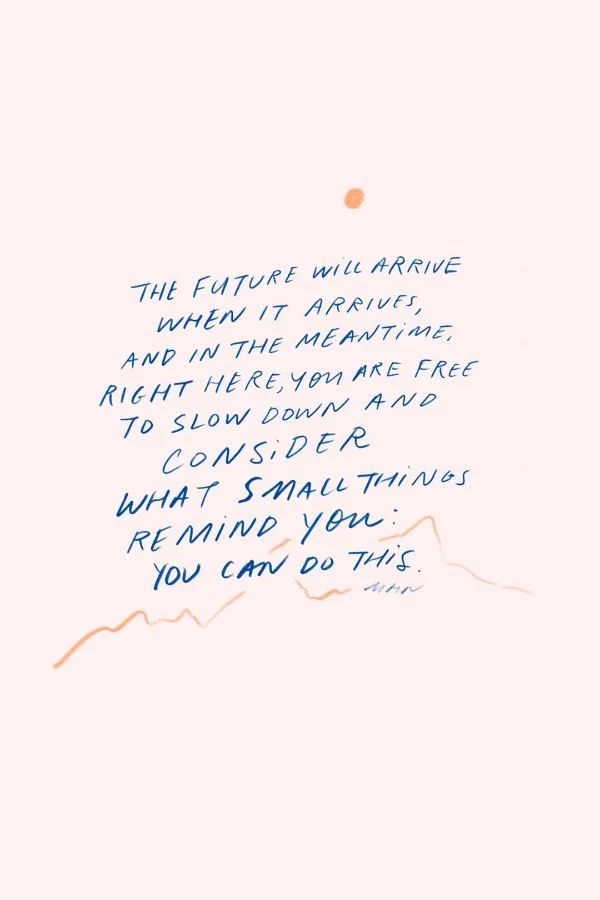 THE FUTURE WILL ARRIVE
WHEN IT ARRIVES,
AND IN THE MEANTIME,
RIGHT HERE, YOU ARE FREE
TO SLOW DOWN AND
CONSIDER
WHAT SMALL THINGS
REMIND YOU:
YOU CAN DO THIS.
MHN